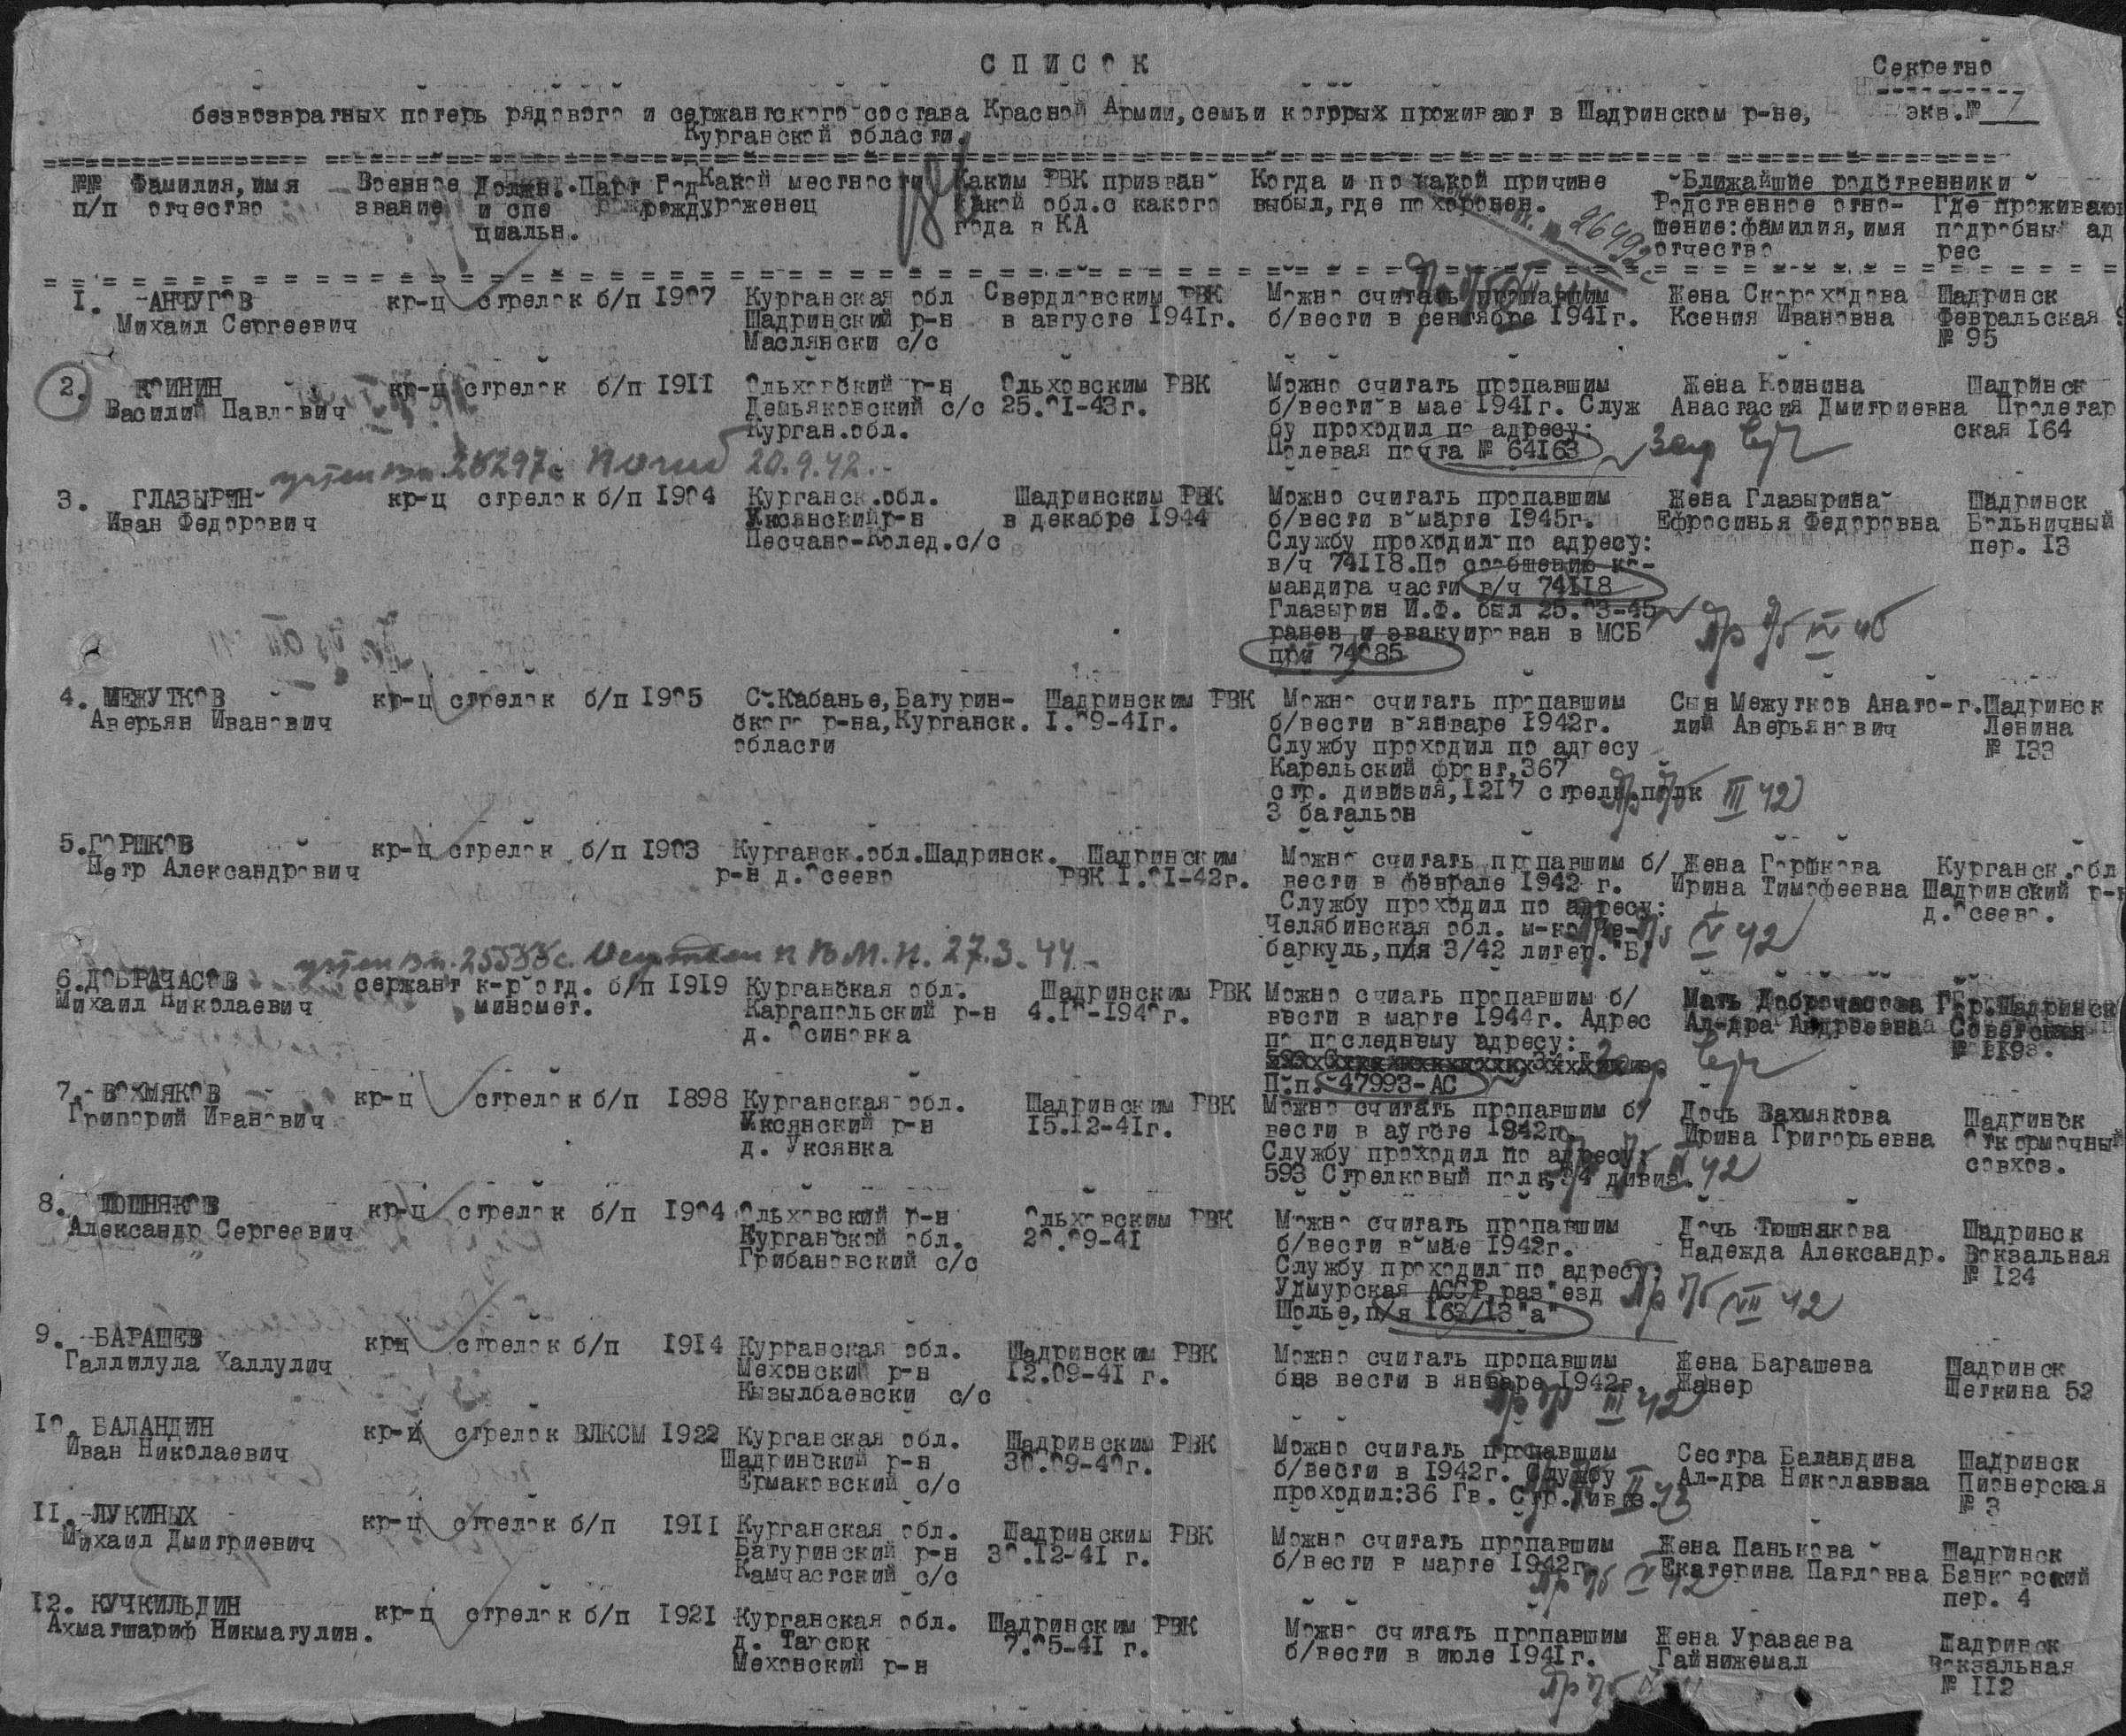 СПИСОК
Секретно
безвозвратных потерь рядового и сержантского состава Красной Армии, семьи которых проживают в Шадринском р-не,
экз.№ 1
Курганской области.
№№ Фамилия, имя Военное Должн. Парт Год Какой местности Каким РВК призван Когда и по какой причине Ближайшие родственники
п/п отчество звание и спе рожд уроженец какой обл. с какого выбыл, где похоронен. Родственное отно- Где проживают
циальн. года в КА шение: фамилия, имя подробный ад
отчество рес
1. АНЧУГОВ кр-ц стрелок б/п 1907 Курганская обл Свердловским РВК Можно считать пропавшим Жена Скороходова Шадринск
Михаил Сергеевич Шадринский р-н в августе 1941г. б/вести в сентябре 1941г. Ксения Ивановна Февральская
Маслянски с/с № 95
2. КОИНИН кр-ц стрелок б/п 1911 Ольховский р-н Ольховским РВК Можно считать пропавшим Жена Коинина Шадринск
Василий Павлович Демьяковский с/с 25.01-43г. б/вести в мае 1941г. Служ Анастасия Дмитриевна Пролетар
Курган.обл. бу проходил по адресу: ская 164
Полевая почта № 64163
28297с Погиб 20.9.42.
3. ГЛАЗЫРИН кр-ц стрелок б/п 1904 Курганск.обл. Шадринским РВК Можно считать пропавшим Жена Глазырина Шадринск
Иван Федорович Уксянский р-н в декабре 1944 б/вести в марте 1945г. Ефросинья Федоровна Больничный
Песчано-Колед.с/с Службу проходил по адресу: пер. 13
в/ч 74118.По сообщению ко-
мандира части в/ч 74118
Глазырин И.Ф. был 25.03-45
ранен и эвакуирован в МСБ
при 74085
пр б IV 46
4. МЕЖУТКОВ кр-ц стрелок б/п 1905 С.Кабанье, Батурин- Шадринским РВК Можно считать пропавшим Сын Межутков Анато- г.Шадринск
Аверьян Иванович ского р-на, Курганск. 1.09-41г. б/вести в январе 1942г. лий Аверьянович Ленина
области Службу проходил по адресу № 133
Карельский фронт, 367
стр. дивизия, 1217 стрелк.полк III 42
3 батальон
5.ГОРШКОВ кр-ц стрелок б/п 1903 Курганск.обл.Шадринск. Шадринским Можно считать пропавшим б/ Жена Горшкова Курганск.обл
Петр Александрович р-н д.Осеево РВК 1.01-42г. вести в феврале 1942 г. Ирина Тимофеевна Шадринский р-н
Службу проходил по адресу: д.Осеево.
Челябинская обл. м-ко Че- V 42
баркуль, п/я 3/42 литер."Б"
27.3.44
6.ДОБРАЧАСОВ сержант к-р отд. б/п 1919 Курганская обл. Шадринским РВК Можно счиать пропавшим б/ Мать Доброчасова Гор.Шадринск
Михаил Николаевич миномет. Каргапольский р-н 4.10-1940г. вести в марте 1944г. Адрес Ал-дра Андреевна Советская
д. Осиновка по последнему адресу: № 119
П.п. 47993-АС
7. ВОХМЯКОВ кр-ц стрелок б/п 1898 Курганская обл. Шадринским РВК Можно считать пропавшим б/ Дочь Вахмякова Шадринск
Григорий Иванович Уксянский р-н 15.12-41г. вести в августе 1942г. Ирина Григорьевна Откормочный
д. Уксянка Службу проходил по адресу: совхоз.
593 Стрелковый полк, 34 дивиз. 42
8. ТЮШНЯКОВ кр-ц стрелок б/п 1904 Ольховский р-н Ольховским РВК Можно считать пропавшим Дочь Тюшнякова Шадринск
Александр Сергеевич Курганской обл. 20.09-41 б/вести в мае 1942г. Надежда Александр. Вокзальная
Грибановский с/с Службу проходил по адресу № 124
Удмурская АССР, раз"езд VII 42
Шолье, п/я 163/13"а"
9. БАРАШЕВ крц стрелок б/п 1914 Курганская обл. Шадринским РВК Можно считать пропавшим Жена Барашева Шадринск
Галлилула Халлулич Мехонский р-н 12.09-41 г. без вести в январе 1942г. Жанер Щеткина 52
Кызылбаевски с/с III 42
10. БАЛАНДИН кр-ц стрелок ВЛКСМ 1922 Курганская обл. Шадринским РВК Можно считать пропавшим Сестра Баландина Шадринск
Иван Николаевич Шадринский р-н 30.09-40г. б/вести в 1942г. Службу Ал-дра Николаевна Пионерская
Ермаковский с/с проходил:36 Гв. Стр.дивиз. 43 № 3
11. ЛУКИНЫХ кр-ц стрелок б/п 1911 Курганская обл. Шадринским РВК Можно считать пропавшим Жена Панькова Шадринск
Михаил Дмитриевич Батуринский р-н 30.12-41 г. б/вести в марте 1942г. Екатерина Павловна Банковский
Камчастский с/с пер. 4
12. КУЧКИЛЬДИН кр-ц стрелок б/п 1921 Курганская обл. Шадринским РВК Можно считать пропавшим Жена Уразаева Шадринск
Ахматшариф Никматулин. д. Тарсюк 7.05-41 г. б/вести в июле 1941г. Гайнижемал Вокзальная
Мехонский р-н № 112